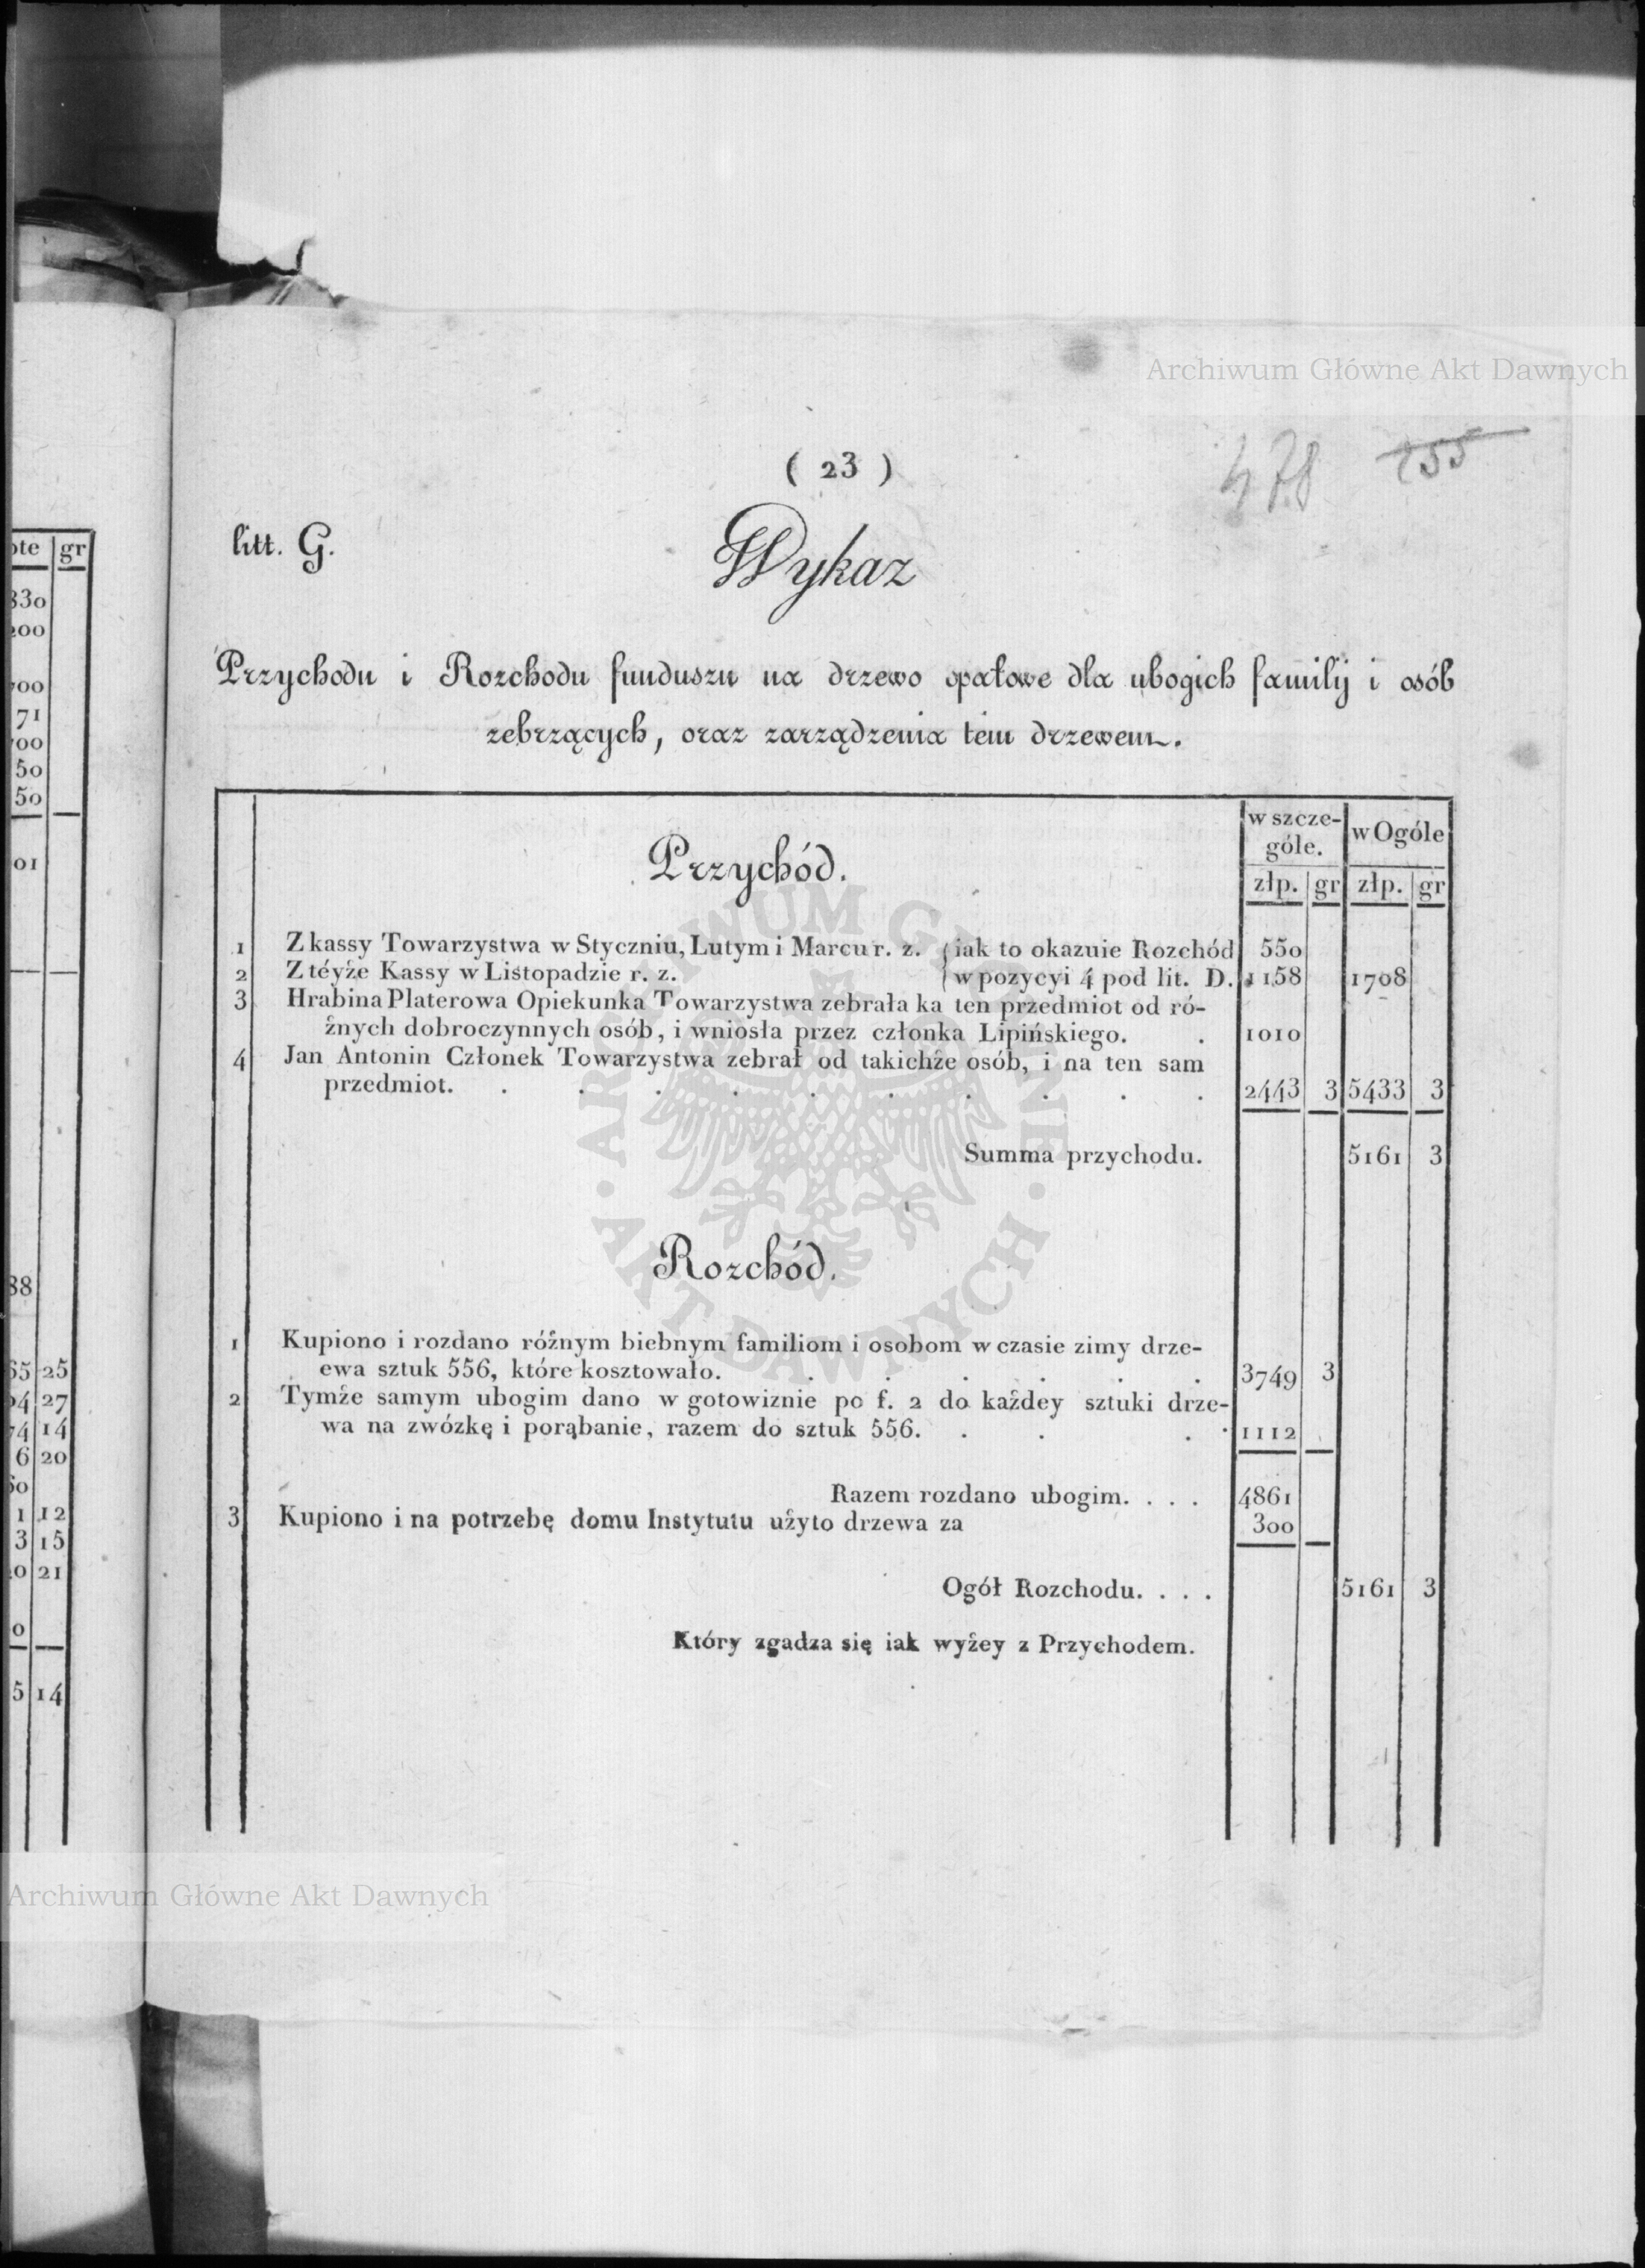 Archiwum Główne Akt Dawnych
( 23 )
478 255
litt. G.
Wykaz
Przychodu i Rozchodu funduszu na drzewo opałowe dla ubogich familij i osób
żebrzących, oraz zarządzenia tem drzewem.
w szcze- w Ogóle
góle.
Przychód.
złp. gr złp. gr
1 Z kassy Towarzystwa w Styczniu, Lutym i Marcu r. z. {iak to okazuie Rozchód 550
2 Z téyże Kassy w Listopadzie r. z. {w pozycyi 4 pod lit. D. 1158 1708
3 Hrabina Platerowa Opiekunka Towarzystwa zebrała ka ten przedmiot od ró-
żnych dobroczynnych osób, i wniosła przez członka Lipińskiego. . 1010
4 Jan Antonin Członek Towarzystwa zebrał od takichże osób, i na ten sam
przedmiot. . . . . . . . . . . 2443 3 5433 3
Summa przychodu. 5161 3
Rozchód.
1 Kupiono i rozdano różnym biebnym familiom i osobom w czasie zimy drze-
ewa sztuk 556, które kosztowało. . . . . . . 3749 3
2 Tymże samym ubogim dano w gotowiznie po f. 2 do każdey sztuki drze-
wa na zwózkę i porąbanie, razem do sztuk 556. . . . . 1112
Razem rozdano ubogim. . . . 4861
3 Kupiono i na potrzebę domu Instytutu użyto drzewa za 300
Ogół Rozchodu. . . . 5161 3
Który zgadza się iak wyżey z Przychodem.
ARCHIWUM GŁÓWNE
AKT DAWNYCH
Archiwum Główne Akt Dawnych
gr
71
50
50
25
27
14
6 20
1 12
3 15
21
0
5 14